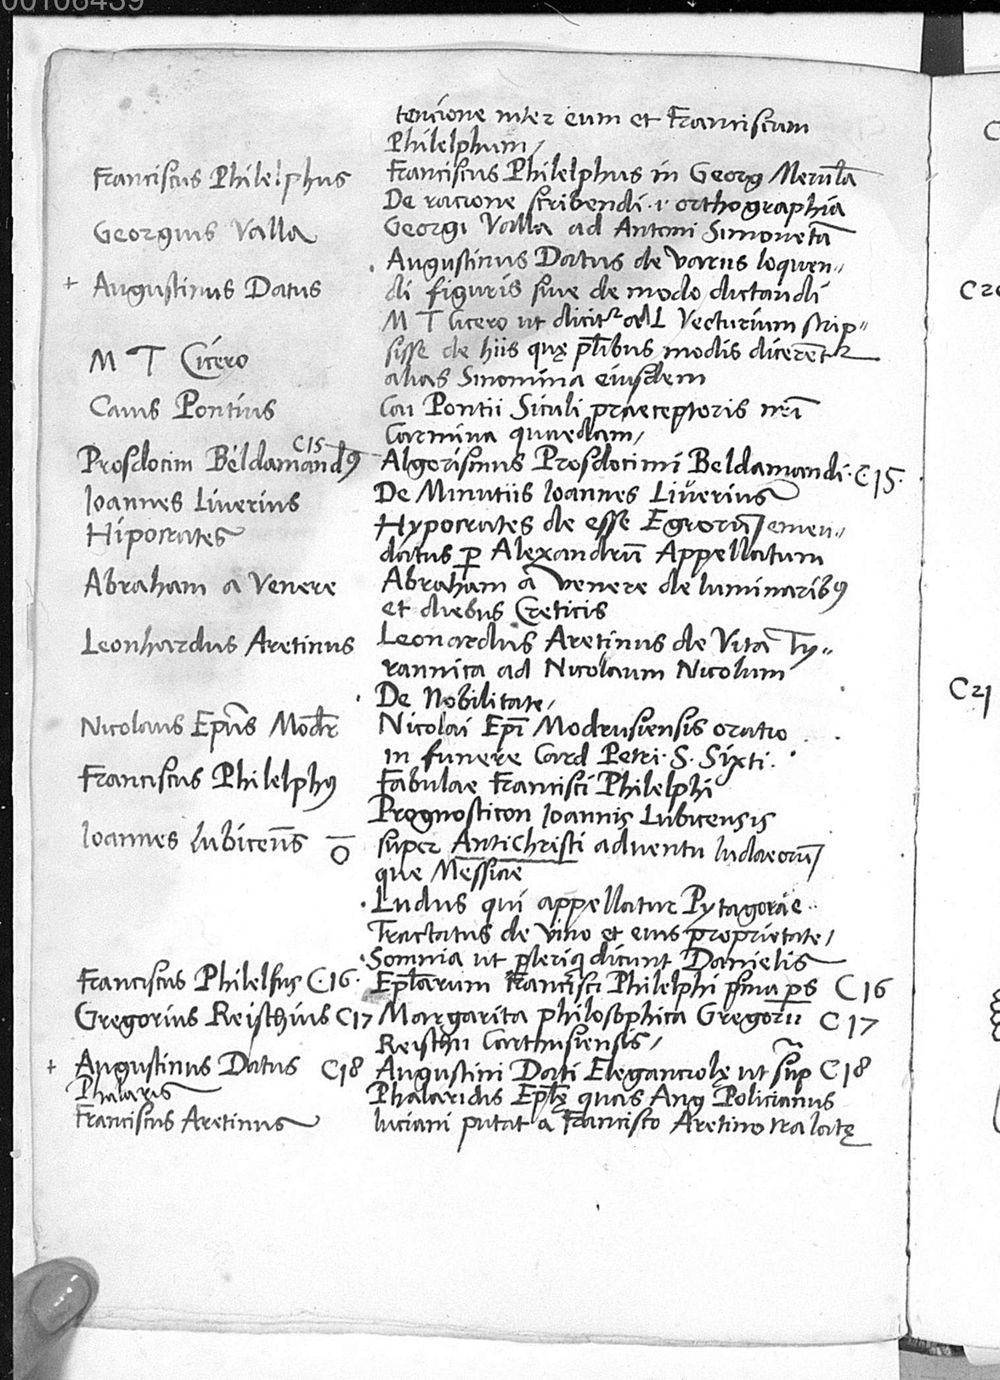 00106439
tencione inter eum et Franciscum
Philelphum/
Franciscus Philelphus Franciscus Philelphus in Georg Merulā
De racione scribendi .i. orthographia
Georgius Valla Georgi Valla ad Antoni Simonetā
Augustinus Datus de Variis loquen„
+ Augustinus Datus di figuris sive de modo dictandi
M T Cicero ut dicitr ad L Vecturium scrip„
M T Cicero sisse de hiis quę pl̄ibus modis dicerent
alias Sinonima eiusdem
Caius Pontius Cai Pontii Siculi praeceptoris nr̄i
Carmina quaedam/
Prosdocim Beldamandꝰ C15 Algorismus Prosdocimi Beldamandi. C15.
Ioannes Liverius De Minutiis Ioannes Liverius
Hipocrates Hypocrates de esse Egrorū emen„
datus p̄ Alexandrū Appellatum
Abraham a Venere Abraham a Venere de luminaribꝰ
et diebus Creticis
Leonhardus Aretinus Leonardus Aretinus de Vita Ty„
rannica ad Nicolaum Nicolum
De Nobilitate/
Nicolaus Ep̄us Modr̄ Nicolai Ep̄i Modrusiensis oratio
in funere Card Petri. S. Sixti.
Franciscus Philelphꝰ Fabulae Francisci Philelphi
Prognosticon Ioannis Lubicensis
Ioannes Lubicen̄s O super Antichristi adventu Iudaeorū
que Messiae
Ludus qui appellatur Pytagorae
Tractatus de vino et eius proprietate/
Somnia ut pleriq dicunt Danielis
Franciscus Philelfus C.16. Epl̄arum Francisci Philelphi p̄ma ps C16
Gregorius Reisthius C17 Margarita philosophica Gregorii C17
Reisthii Carthusiensis/
+ Augustinus Datus C18 Augustini Dati Eleganciolę ut sup̄ C18
Phalaris Phalaridis Epl̄ę quas Ang Policianus
Franciscus Aretinus luciani putat a Francisco Aretino tralatę
C21